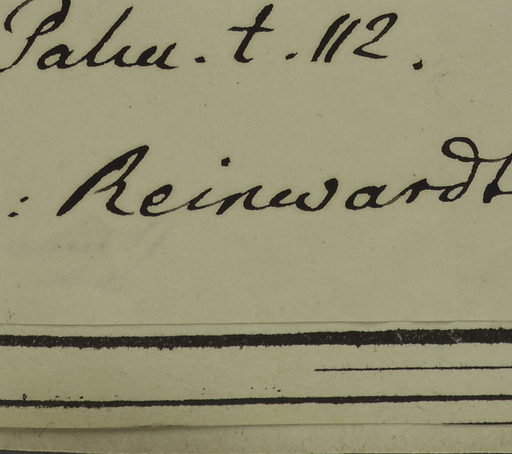 Palu. t. 112.
: Reinwardt